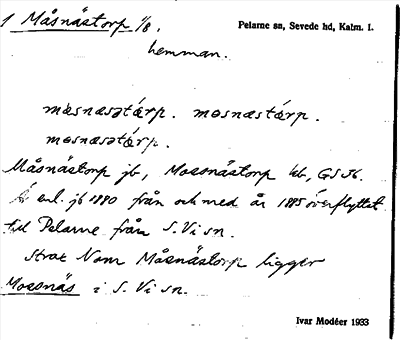 1 Måsnästorp 1/8. Pelarne sn, Sevede hd, Kalm. l.
hemman.
mɷsnæsətǽrp. mɷsnæstǽrp.
mɷsnæsətǽrp.
Måsnästorp jb, Mossnästorp kb, GS 56.
Är enl. jb 1880 från och med år 1885 överflyttat
till Pelarne från S. Vi sn.
Strax Norr Måsnästorp ligger
Mossnäs i S. Vi sn.
Ivar Modéer 1933